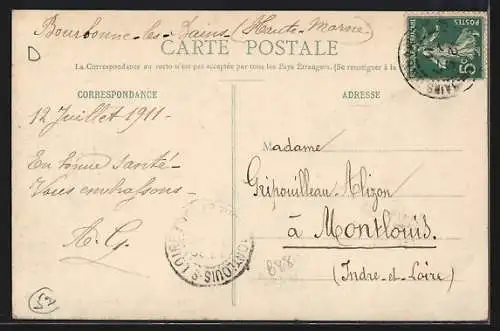 Bourbonne-les-Bains (Haute-Marne)
D
CARTE POSTALE
La Correspondance au recto n'est pas acceptée par tous les Pays Étrangers. (Se renseigner à la
POSTES
5c
CORRESPONDANCE
ADRESSE
12 Juillet 1911-
En bonne santé-
Vous embrassons-
A. G.
Madame
Gripouilleau Alizon
à Montlouis.
(Indre-et-Loire)
MONTLOUIS-S-LOIRE
688
25